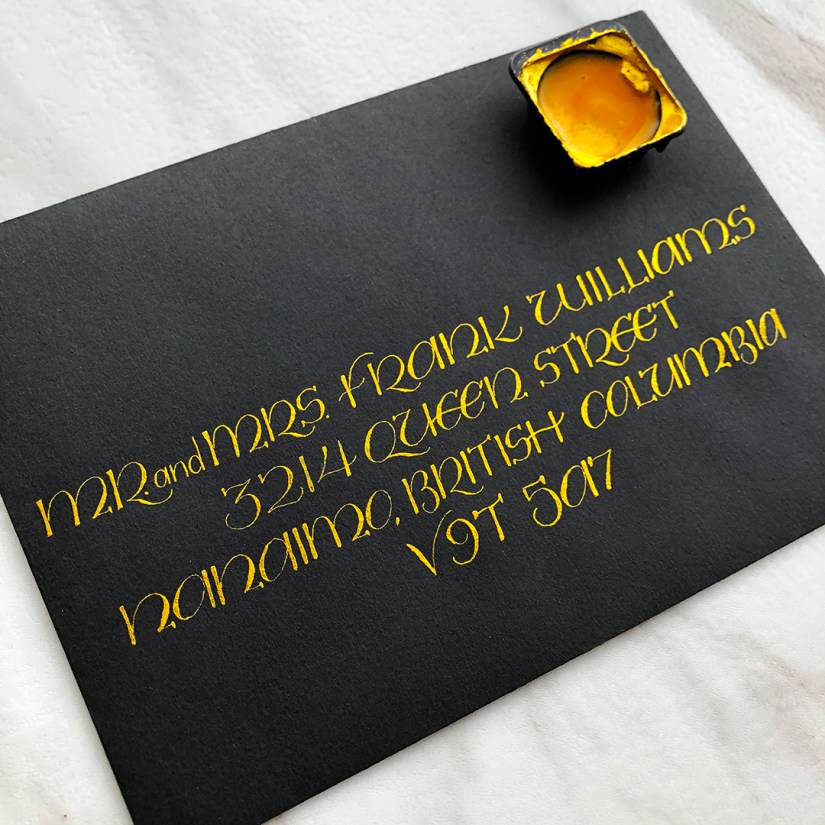 MR. and MRS. FRANK WILLIAMS
3214 QUEEN STREET
NANAIMO, BRITISH COLUMBIA
V9T 5A7